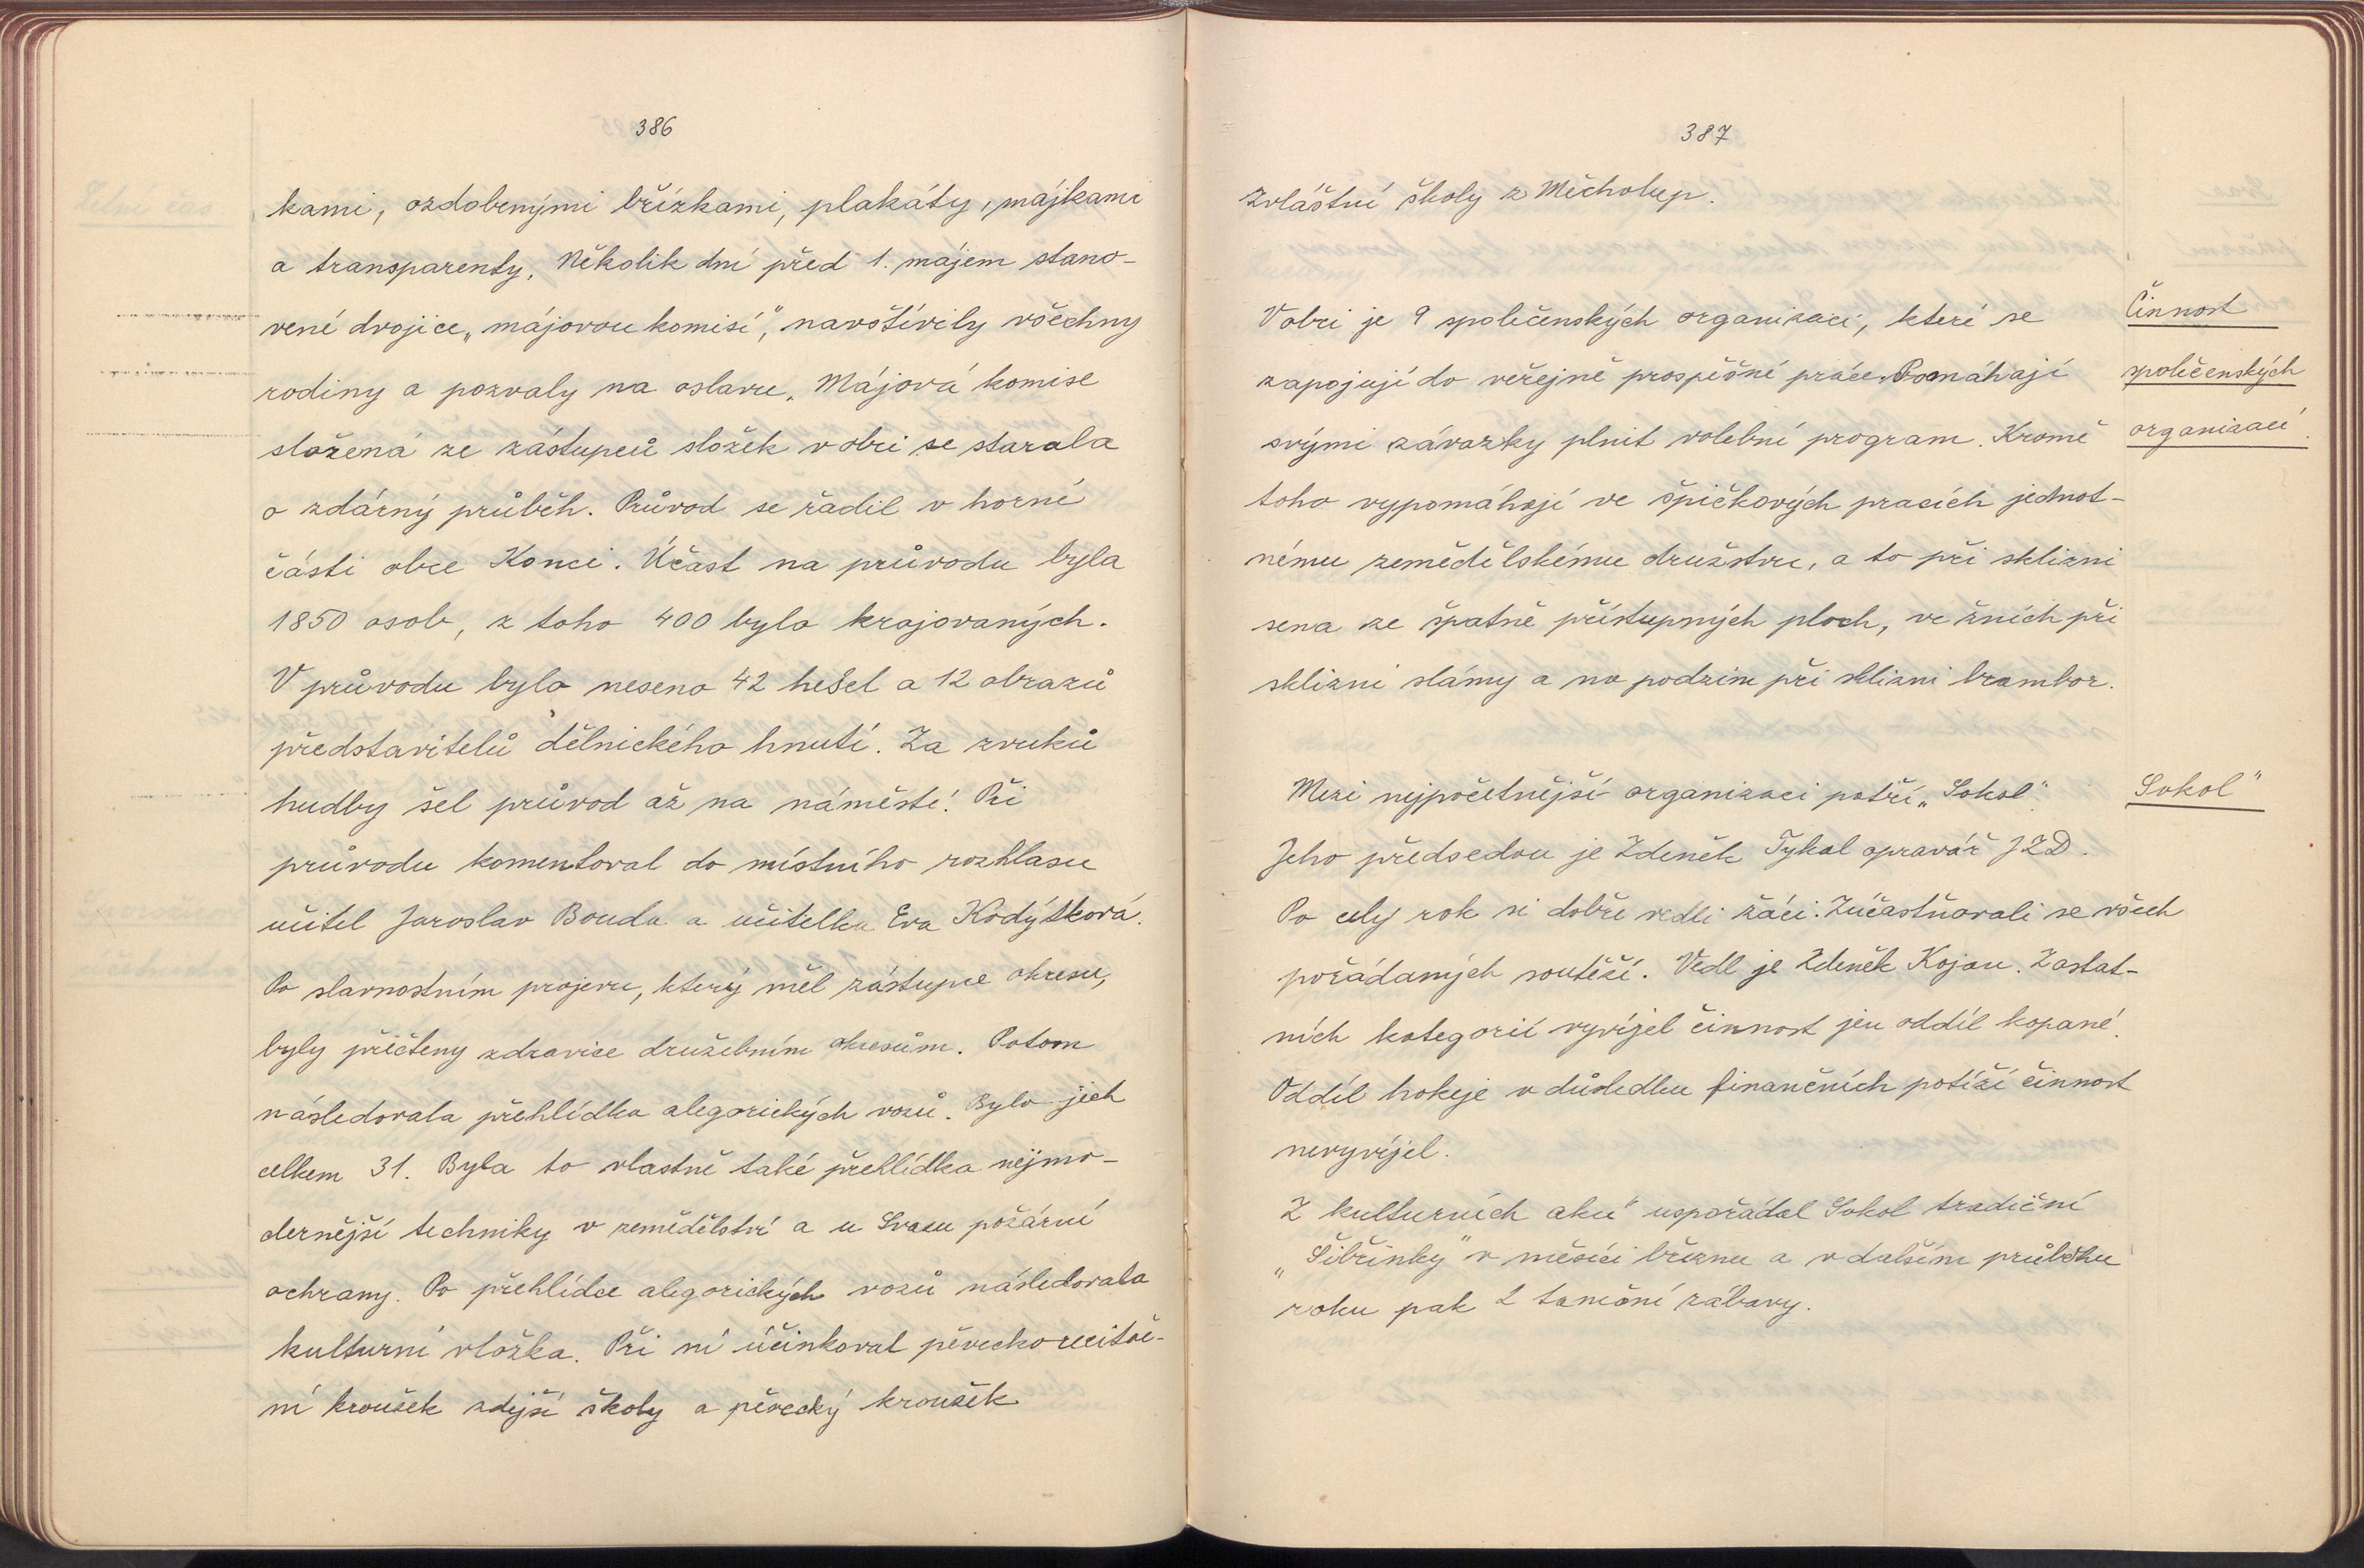 386
kami, ozdobenými břízkami, plakáty, májkami
a transparenty. Několik dní před 1. májem stano-
vené dvojice „májovou komisí", navštívily všechny
rodiny a pozvaly na oslavu. Májová komise
složená ze zástupců složek v obci se starala
o zdárný průběh. Průvod se řadil v horní
části obce Konci. Účast na průvodu byla
1850 osob, z toho 400 bylo krojovaných.
V průvodu bylo neseno 42 hesel a 12 obrazů
představitelů dělnického hnutí. Za zvuků
hudby šel průvod až na náměstí. Při
průvodu komentoval do místního rozhlasu
učitel Jaroslav Bouda a učitelka Eva Kodýtková.
Po slavnostním projevu, který měl zástupce okresu,
byly přičteny zdravice družebním okresům. Potom
následovala přehlídka alegorických vozů. Bylo jich
celkem 31. Byla to vlastně také přehlídka nejmo-
dernější techniky v zemědělství a u Svazu požární
ochrany. Po přehlídce alegorických vozů následovala
kulturní vložka. Při ní účinkoval pěveckorecitač-
ní kroužek zdejší školy a pěvecký kroužek
387
zvláštní školy z Měcholup.
Činnost
společenských
organizací.
V obci je 9 společenských organizací, které se
zapojují do veřejně prospěšné práce. Pomáhají
svými závazky plnit volební program. Kromě
toho vypomáhají ve špičkových pracích jednot-
nému zemědělskému družstvu, a to při sklizni
sena ze špatně přístupných ploch, ve žních při
sklizni slámy a na podzim při sklizni brambor.
Sokol"
Mezi nejpočetnější organizaci patří „Sokol".
Jeho předsedou je Zdeněk Tykal opravář JZD.
Po celý rok si dobře vedli žáci. Zúčastňovali se všech
pořádaných soutěží. Vedl je Zdeněk Kojan. Z ostat-
ních kategorií vyvíjel činnost jen oddíl kopané.
Oddíl hokeje v důsledku finančních potíží činnost
nevyvíjel.
Z kulturních akcí uspořádal Sokol tradiční
„Šibřinky" v měsíci březnu a v dalším průběhu
roku pak 2 taneční zábavy.